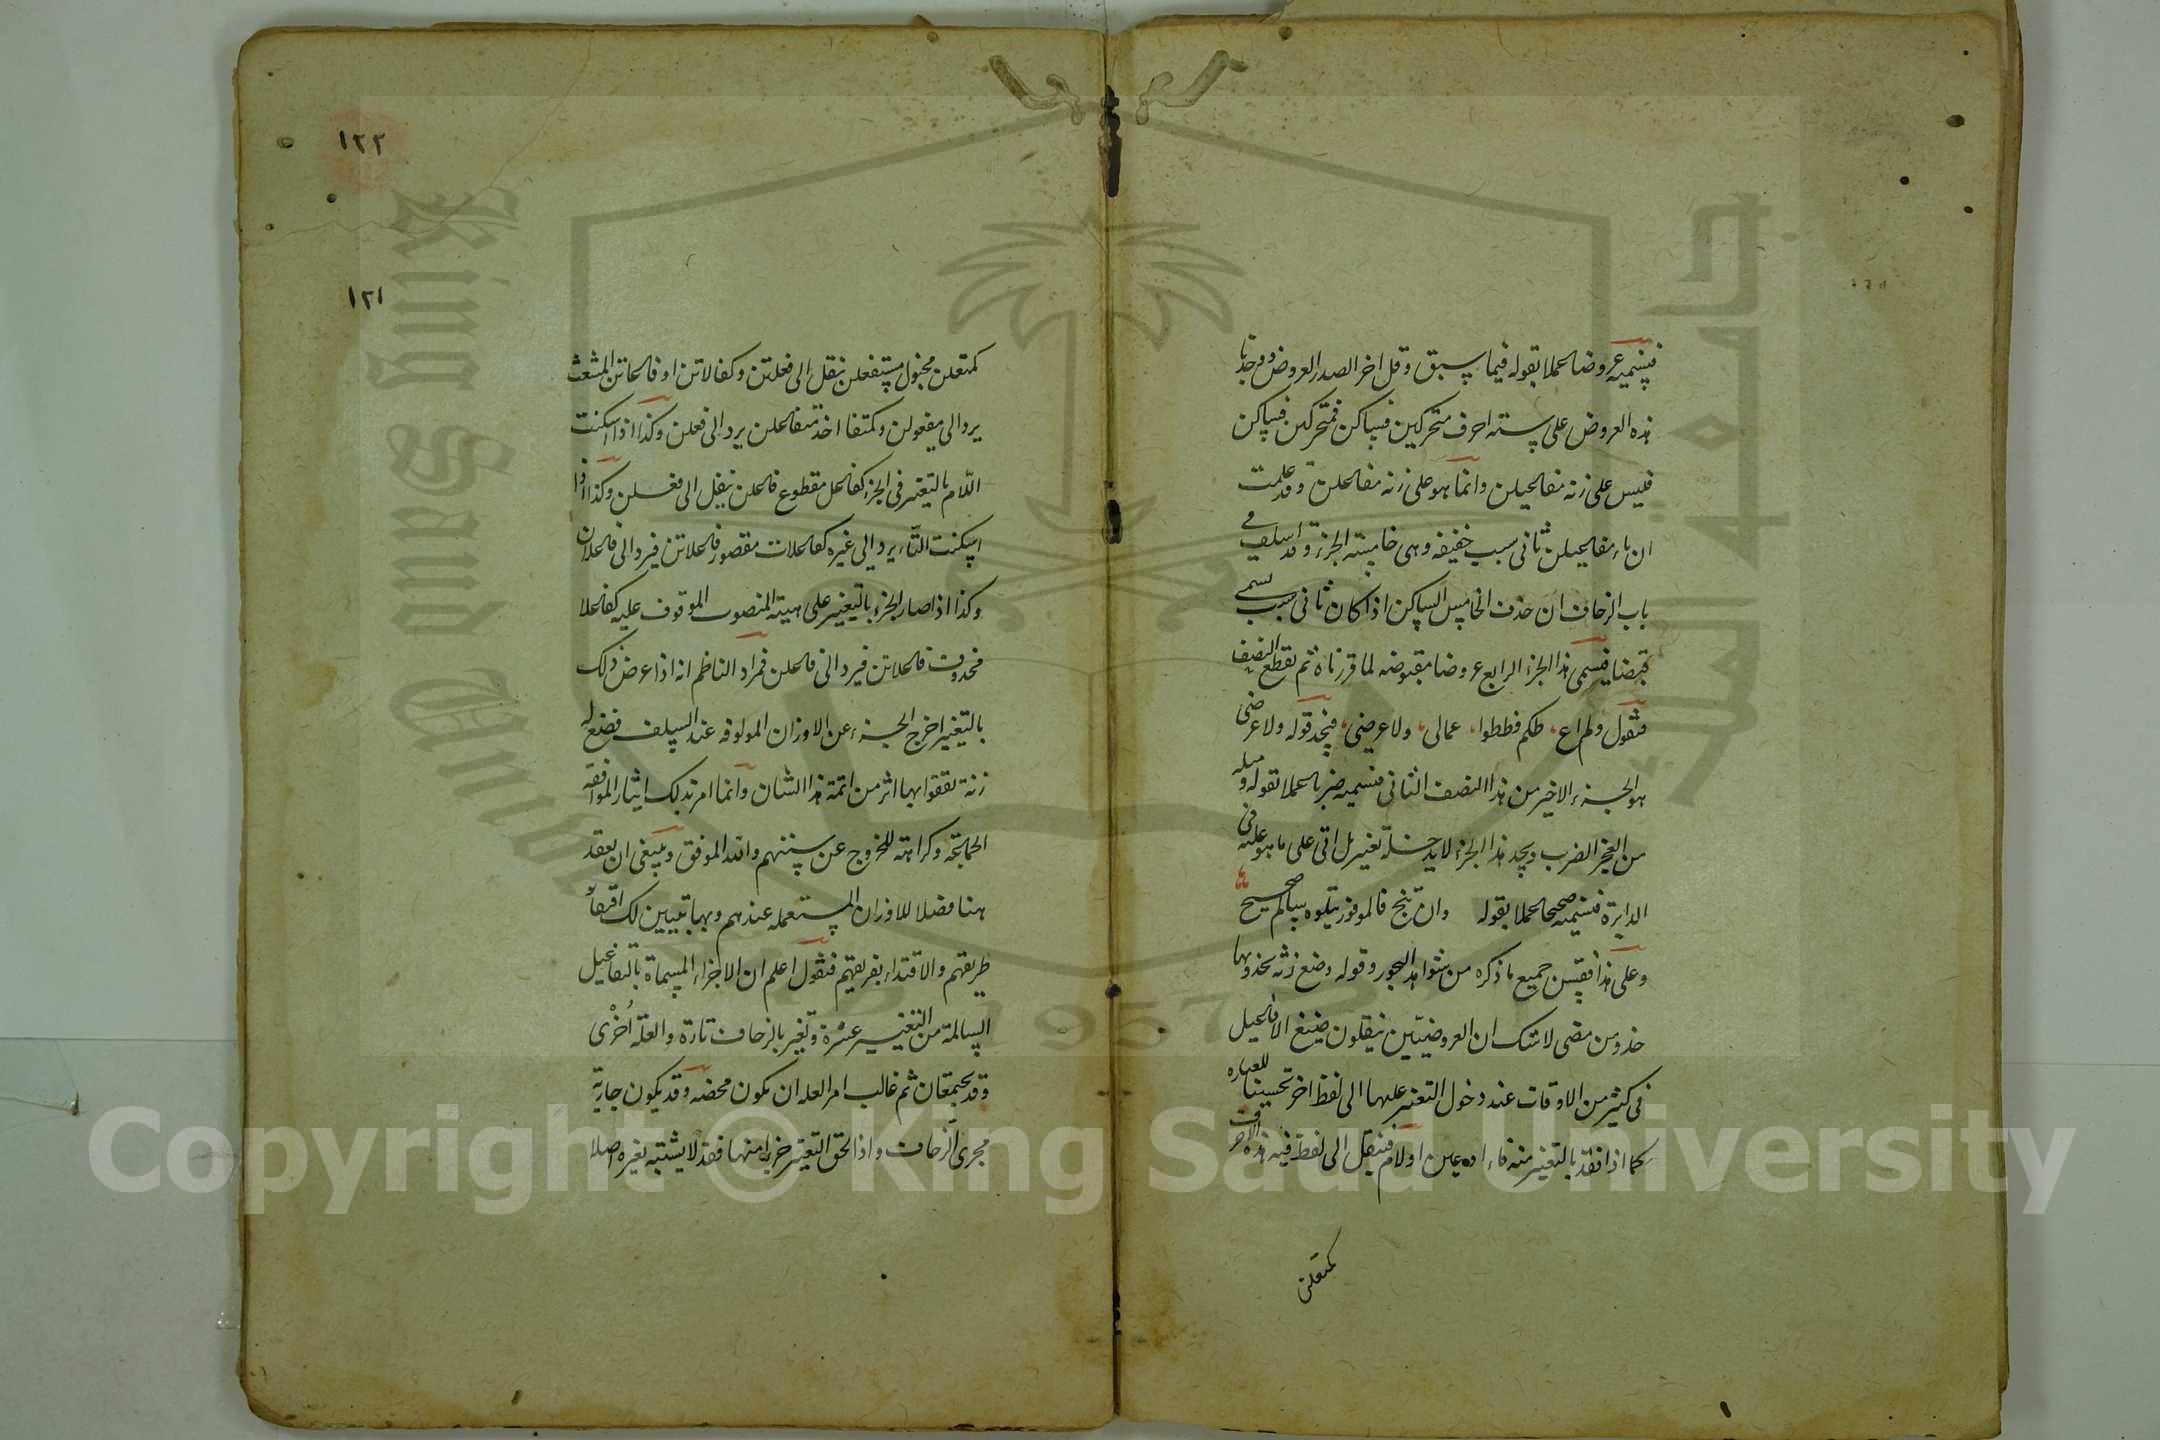 فتسميه عروضا عملا بقوله فيما سبق وقل اخر الصدر العروض ووجدنا
هذه العروض على ستة احرف متحركين فساكن فمتحركين فساكن
فليس على زنة مفاعيلن وانما هو على زنة مفاعلن وقد علمت
ان ياء مفاعيلن ثاني سبب خفيفه وهي خامسته الجزء وقد اسلف في
باب الزحاف ان حذف الخامس الساكن اذا كان ثاني سبب يسمى
قبضا فيسمى هذا الجزء الرابع عروضا مقبوضه لما قررناه ثم نقطع النصف
فنقول ولم اع طكم فططوا عمالي ولا عرضي فنجد قوله ولا عرضي
هو الجزء الاخير من هذا النصف الثاني فنسميه ضربا عملا بقوله ومثله
من العجز الضرب ونجد هذا الجزء لا يدخله تغيير بل اتى على ما هو عليه في
الدايرة فنسميه صحيحا عملا بقوله وان تنج فالموفور يتلوه سالم صحيح
وعلى هذا فقس جميع ما ذكره من شواهد البحور وقوله وضع زنة يحذو بها
حذو من مضى لا شك ان العروضيين ينقلون صيغ الافاعيل
في كثير من الاوقات عند دخول التغيير عليها الى لفظ اخر تحسينا للعباره
كما اذا فقد بالتغيير منه فاء او عين او لام فينقل الى لفظ فيه هذه الاحرف
كمتعلن
١٢٢
١٢١
كمتعلن مخبول مستفعلن ينقل الى فعلتن وكفالاتن او فاعاتن المشعث
يرد الى مفعولن وكمتفا احذ متفاعلن يرد الى فعلن وكذا اذا اسكنت
اللام بالتغيير في الجزء كفاعل مقطوع فاعلن ينقل الى فعلن وكذا اذا
اسكنت التاء يرد الى غيره كفاعلات مقصور فاعلاتن فيرد الى فاعلان
وكذا اذا صار الجزء بالتغيير على هيئة المنصوب الموقوف عليه كفاعلا
محذوف فاعلاتن فيرد الى فاعلن فمراد الناظم انه اذا عرض ذلك
بالتغيير اخرج الجزء عن الاوزان المولوفه عند السلف فضع له
زنة تقفوا بها اثر من ائمة هذا الشان وانما امر بذلك ايثار الموافقة
الجماعة وكراهة للخروج عن سننهم والله الموفق وينبغي ان نعقد
هنا فضلا للاوزان المستعمله عندهم وبها يتبين لك اقتفاء
طريقهم والاقتداء بفريقهم فنقول اعلم ان الاجزاء المسماة بالتفاعيل
السالمة من التغيير عشرة وتغير بالزحاف تارة والعلة اخرى
وقد يجتمعان ثم غالب امر العله ان تكون محضه وقد يكون جارية
مجرى الزحاف واذا لحق التغيير جزءا منها فقد لا يشتبه بغيره اصلا
Copyright © King Saud University
جامعة الملك
King Saud University
1957